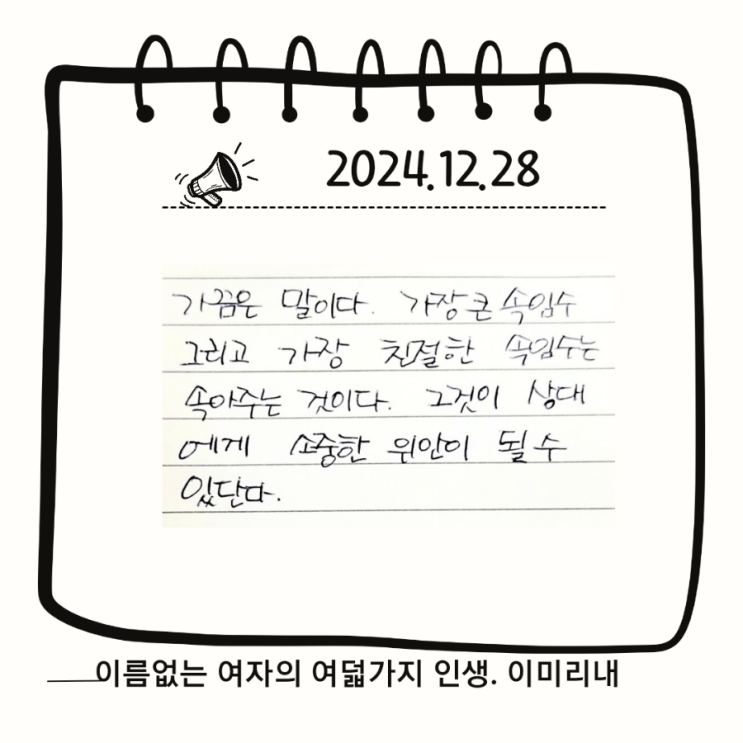 2024.12.28
가끔은 말이다. 가장 큰 속임수
그리고 가장 친절한 속임수는
속아주는 것이다. 그것이 상대
에게 소중한 위안이 될 수
있단다.
이름없는 여자의 여덟가지 인생. 이미리내